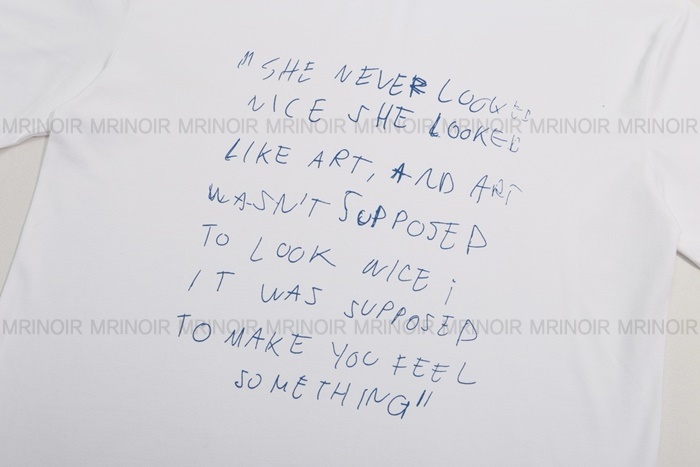 "SHE NEVER LOOKED
NICE SHE LOOKED
MRINOIR MRINOIR MRINOIR MRINOIR MRINOIR MRINOIR MRINOIR MRINOIR
LIKE ART, AND ART
WASN'T SUPPOSED
TO LOOK NICE;
IT WAS SUPPOSED
MRINOIR MRINOIR MRINOIR MRINOIR MRINOIR MRINOIR MRINOIR MRINOIR
TO MAKE YOU FEEL
SOMETHING"